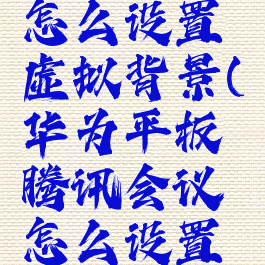 怎么设置
虚拟背景(
华为平板
腾讯会议
怎么设置